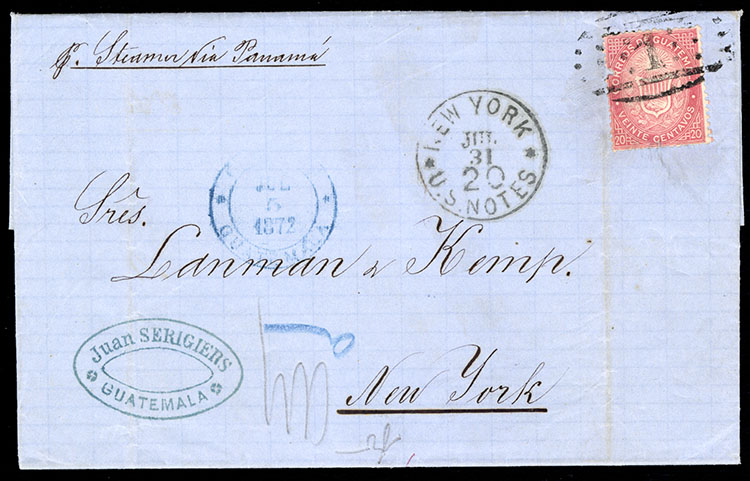 p. Steamer via Panamá
CORREOS DE GUATEMALA
1
VEINTE CENTAVOS
20 20
NEW YORK
JUL.
31
20
U.S. NOTES
JUL
5
1872
GUATEMALA
Srēs.
Lanman & Kemp.
Juan SERIGIERS
GUATEMALA
New York